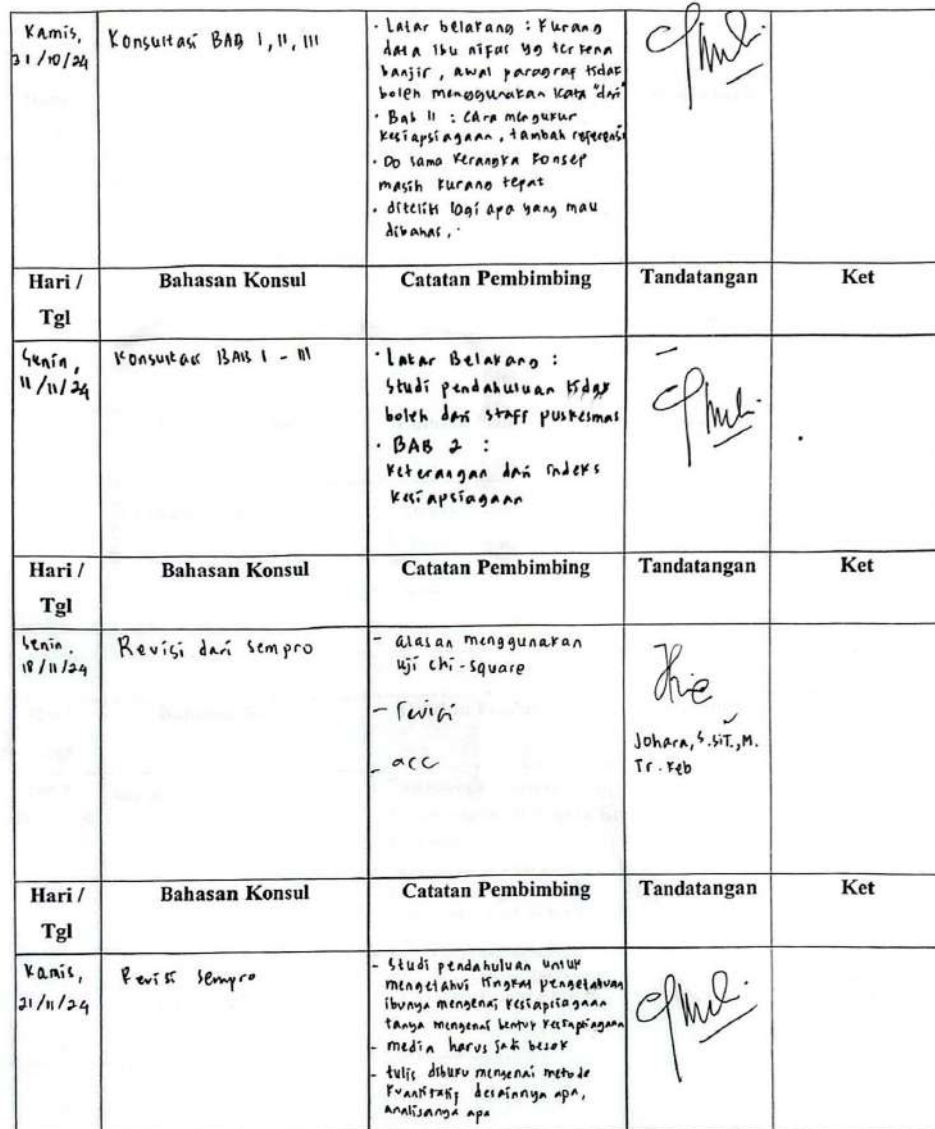 Kamis,
31/10/24
Konsultasi BAB I, II, III
· Latar belakang : Kurang
data ibu nifas yg terkena
banjir, awal paragraf tidak
boleh menggunakan kata "dari"
· Bab II : Cara mengukur
kesiapsiagaan, tambah referensi
· DO sama kerangka konsep
masih kurang tepat
· ditelili lagi apa yang mau
dibahas,
Hari /
Tgl
Bahasan Konsul
Catatan Pembimbing
Tandatangan
Ket
Senin,
11/11/24
Konsultasi BAB I - III
· Latar Belakang :
Studi pendahuluan tidak
boleh dari staff puskesmas
· BAB 2 :
Keterangan dari indeks
kesiapsiagaan
Hari /
Tgl
Bahasan Konsul
Catatan Pembimbing
Tandatangan
Ket
Senin,
18/11/24
Revisi dari sempro
- alasan menggunakan
uji chi-square
- revisi
- acc
Johara, S.SiT., M.
Tr. Keb
Hari /
Tgl
Bahasan Konsul
Catatan Pembimbing
Tandatangan
Ket
Kamis,
21/11/24
Revisi Sempro
- Studi pendahuluan untuk
mengetahui tingkat pengetahuan
ibunya mengenai kesiapsiagaan
tanya mengenai bentuk kesiapsiagaan
- media harus jadi besok
- tulis dibuku mengenai metode
kuantitatif desainnya apa,
analisanya apa